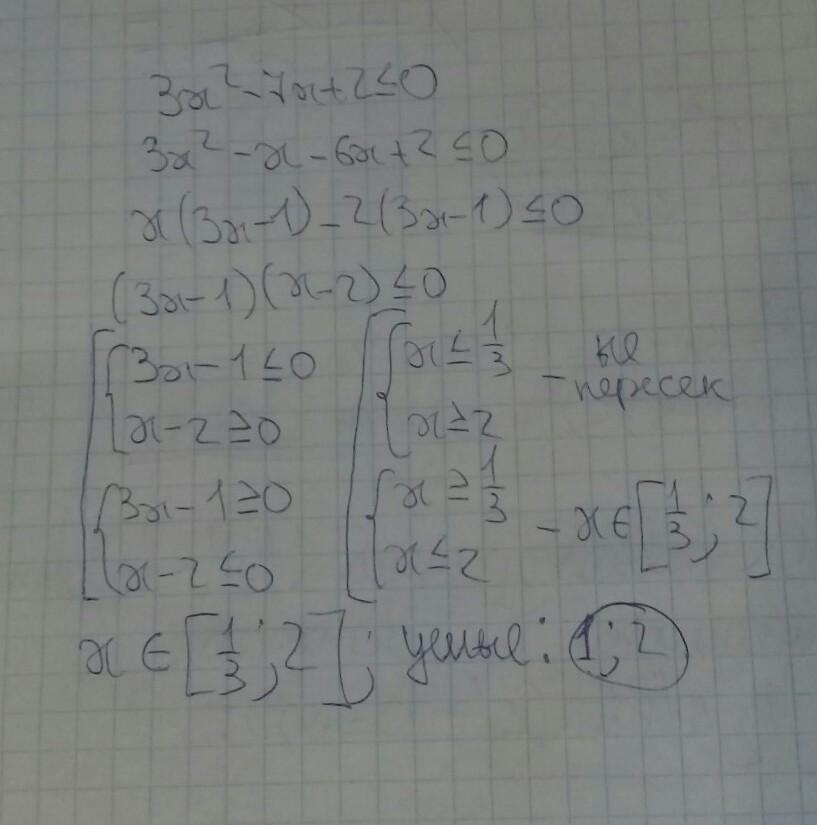 3x² - 7x + 2 ≤ 0
3x² - x - 6x + 2 ≤ 0
x(3x - 1) - 2(3x - 1) ≤ 0
(3x - 1)(x - 2) ≤ 0
[ { 3x - 1 ≤ 0 [ { x ≤ 1/3 - не пересек
x - 2 ≥ 0 x ≥ 2
{ 3x - 1 ≥ 0 { x ≥ 1/3 - x ∈ [1/3; 2]
x - 2 ≤ 0 x ≤ 2
x ∈ [1/3; 2]; целые: 1; 2